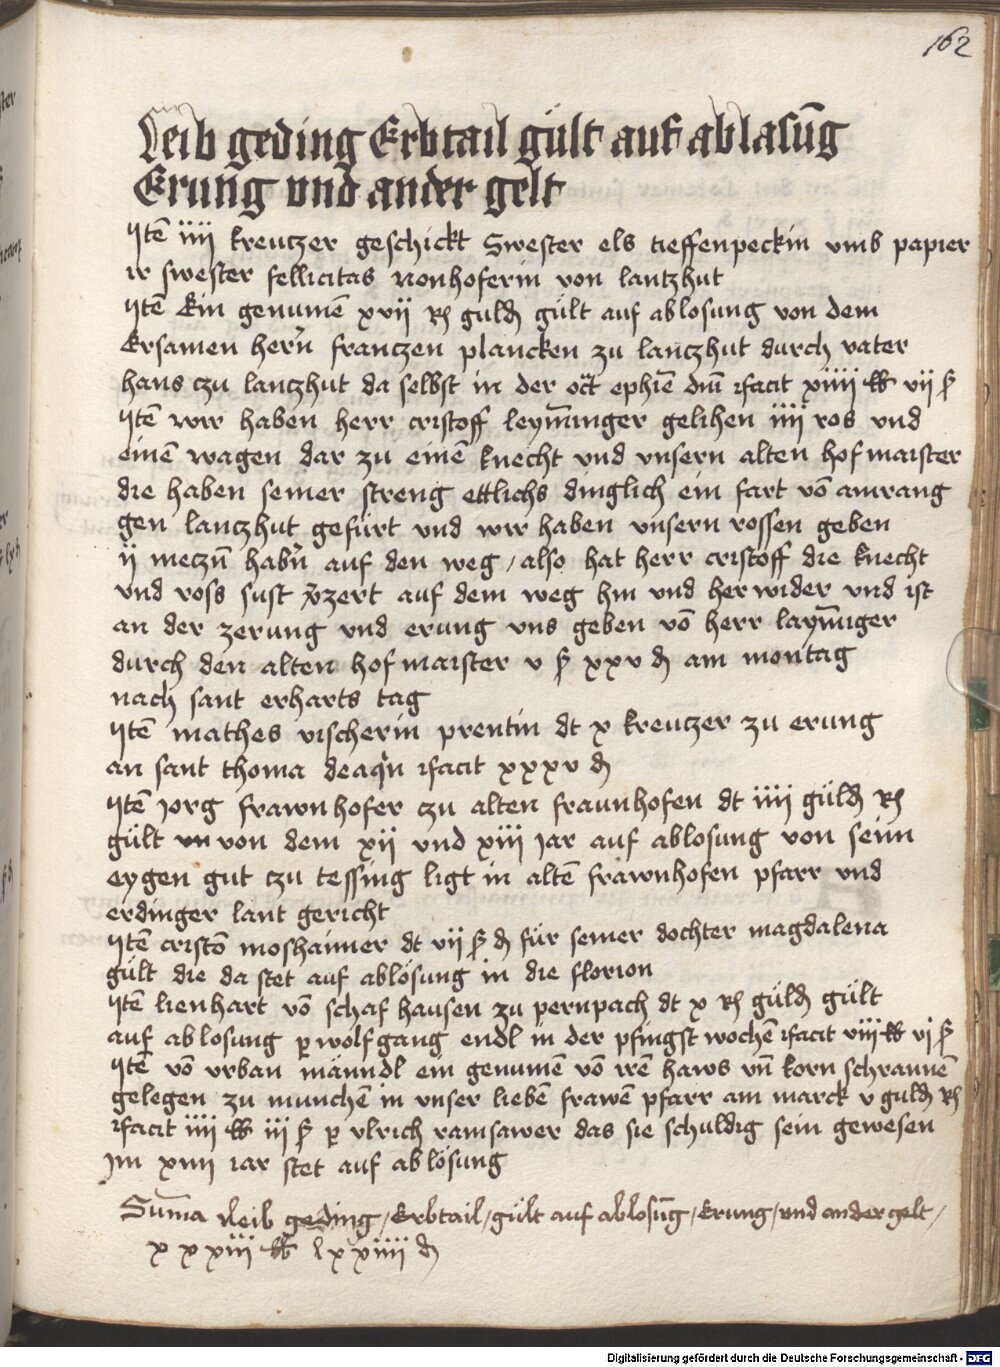 162
Leib geding Erbtail gült auf ablasūg
Erung vnd ander gelt
Itē iiij kreutzer geschickt Swester els tieffenpeckin vmb papier
ir swester fellicitas nonhoferin von lantzhut
Itē Ein genumē xvij Rh guldȷ gült auf ablosung von dem
Ersamen herrn frantzen plancken zu lantzhut durch vater
hans czu lantzhut da selbst in der oct ephie dm̄ facit xiiii lb vij ß
Itē wir haben herr cristoff leym̄inger gelihen iiij ros vnd
einē wagen dar zu einē knecht vnd vnsern alten hofmaister
die haben seiner streng ettlichs dinglich ein fart vō amrang
gen lantzhut gefürt vnd wir haben vnsern rossen geben
ij meczn̄ habn̄ auf den weg / also hat herr cristoff die knecht
vnd ross sust v̄zert auf dem weg hin vnd herwider vnd ist
an der zerung vnd erung vns geben vō herr laym̄iger
durch den alten hofmaister v ß xxv d am montag
nach sant erharts tag
Itē mathes vischerin prentin dt x kreutzer zu erung
an sant thoma deaqn facit xxxv d
Itē jorg frawnhofer czu alten fraunhofen dt iiij güld Rh
gült vn von dem xij vnd xiii jar auf ablosung von seim
eygen gut czu tessing ligt in altē frawnhofen pfarr vnd
erdinger lant gericht
Itē cristō moshaimer dt vij ß d für seiner dochter magdalena
gült die da stet auf ablösung in die florion
Itē lienhart vō schafhausen zu pernpach dt x Rh güld gült
auf ablosung p wolfgang endl in der pfingstwochē facit viij lb vj ß
Itē vō vrban männdl ein genumē vō irē haws vn̄ korn schrannē
gelegen zu munchē in vnser liebē frawē pfarr am marck v guld Rh
facit iiij lb iij ß p vlrich ramsawer das sie schuldig sein gewesen
Im xiiij iar stet auf ablösung
Sūma Leib geding / Erbtail / gült auf ablosūg / Erung / vnd ander gelt /
xxxiii lb lxxiiii d
Digitalisierung gefördert durch die Deutsche Forschungsgemeinschaft - DFG